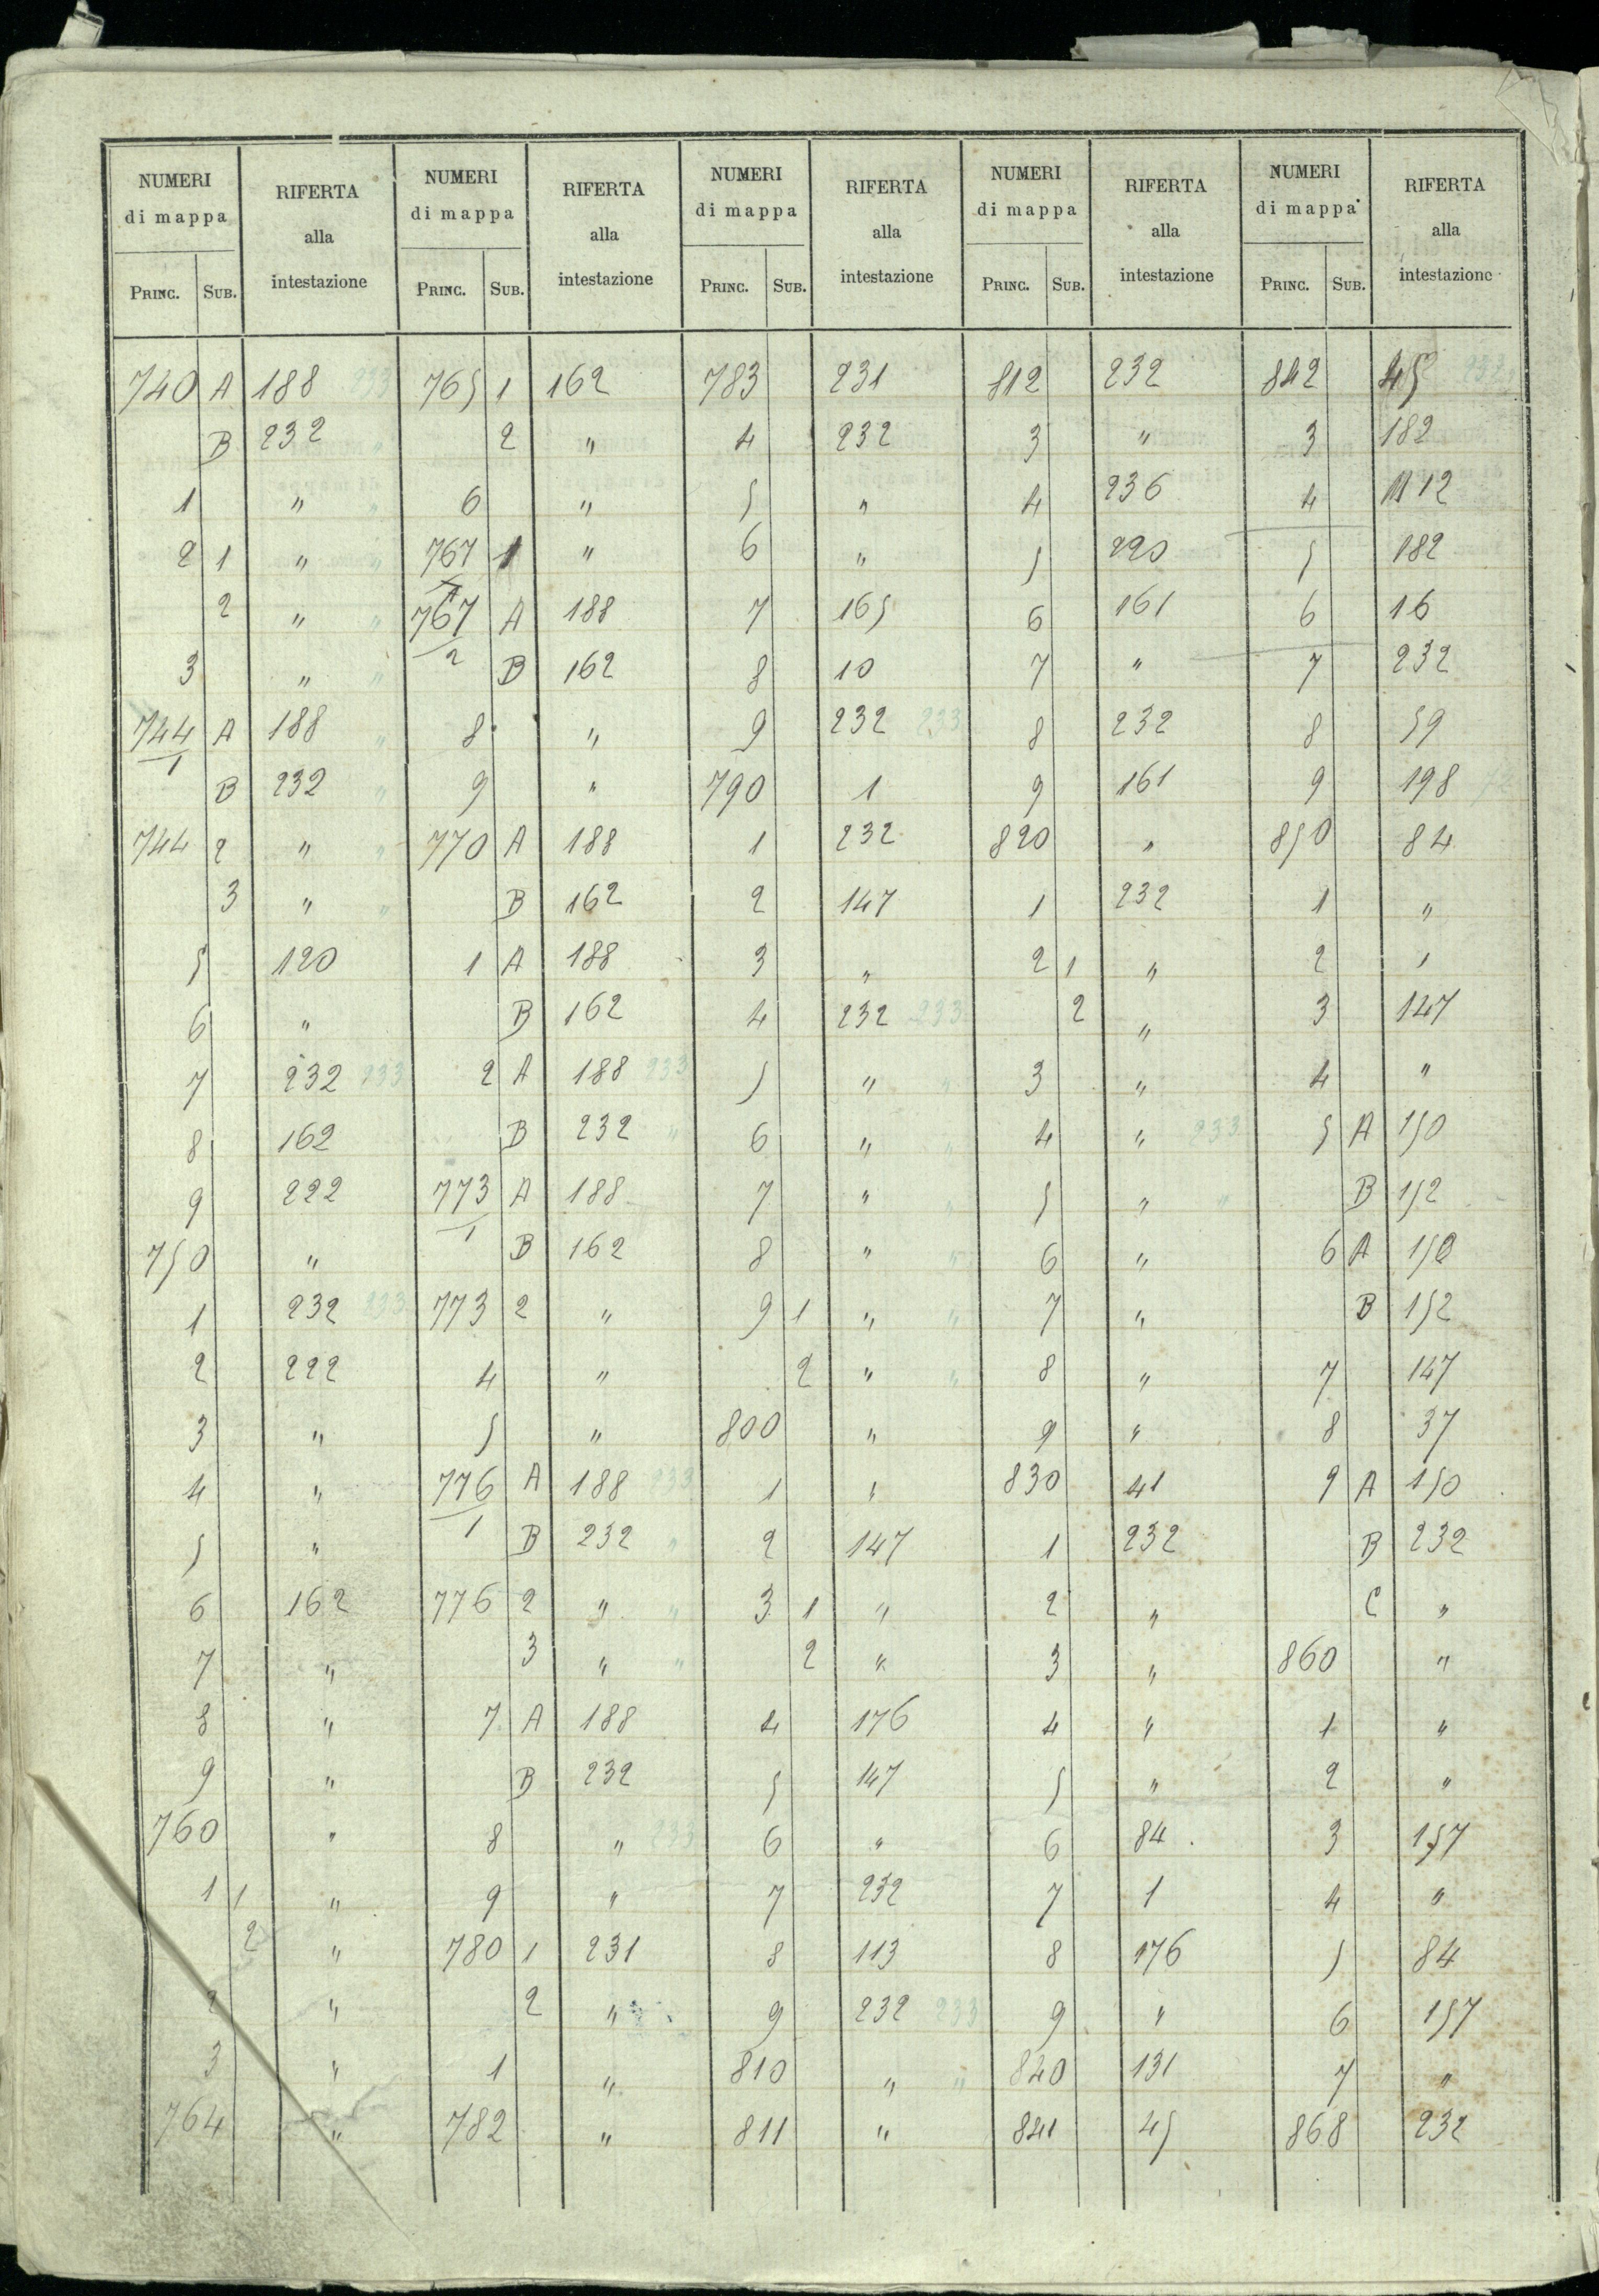 NUMERI di mappa | RIFERTA alla intestazione | NUMERI di mappa | RIFERTA alla intestazione | NUMERI di mappa | RIFERTA alla intestazione | NUMERI di mappa | RIFERTA alla intestazione | NUMERI di mappa | RIFERTA alla intestazione
PRINC. | SUB. | PRINC. | SUB. | PRINC. | SUB. | PRINC. | SUB. | PRINC. | SUB.
740 A 188 233 | 765 1 162 | 783 231 | 812 232 | 842 45 232
B 232 " | 2 " | 4 232 | 3 " | 3 182
1 " " | 6 " | 5 " | 4 236 | 4 112
2 1 " " | 767/1 1 " | 6 " | 5 220 | 5 182
2 " " | 767/2 A 188 | 7 165 | 6 161 | 6 16
3 " " | B 162 | 8 10 | 7 " | 7 232
744/1 A 188 " | 8 " | 9 232 233 | 8 232 | 8 59
B 232 " | 9 " | 790 1 | 9 161 | 9 198 72
744 2 " " | 770 A 188 | 1 232 | 820 " | 850 84
3 " " | B 162 | 2 147 | 1 232 | 1 "
5 120 | 1 A 188 | 3 " | 2 1 " | 2 1
6 " | B 162 | 4 232 233 | 2 " | 3 147
7 232 233 | 2 A 188 233 | 5 " " | 3 " | 4 "
8 162 | B 232 " | 6 " " | 4 " 233 | 5 A 150
9 222 | 773/1 A 188 | 7 " " | 5 " " | B 152
750 " | B 162 | 8 " " | 6 " | 6 A 150
1 232 233 | 773 2 " | 9 1 " " | 7 " | B 152
2 222 | 4 " | 2 " " | 8 " | 7 147
3 " | 5 " | 800 " | 9 " | 8 37
4 " | 776/1 A 188 233 | 1 " | 830 41 | 9 A 150
5 " | B 232 " | 2 147 | 1 232 | B 232
6 162 | 776 2 " " | 3 1 " | 2 " | C "
7 " | 3 " " | 2 " | 3 " | 860 "
8 " | 7 A 188 | 4 176 | 4 " | 1 "
9 " | B 232 | 5 147 | 5 " | 2 "
760 " | 8 " 233 | 6 " | 6 84 | 3 157
1 1 " | 9 " | 7 232 | 7 1 | 4 "
2 " | 780 1 231 | 8 113 | 8 176 | 5 84
2 " | 2 " | 9 232 233 | 9 " | 6 157
3 " | 1 " | 810 " " | 840 131 | 7 "
764 " | 782 " | 811 " | 841 45 | 868 232